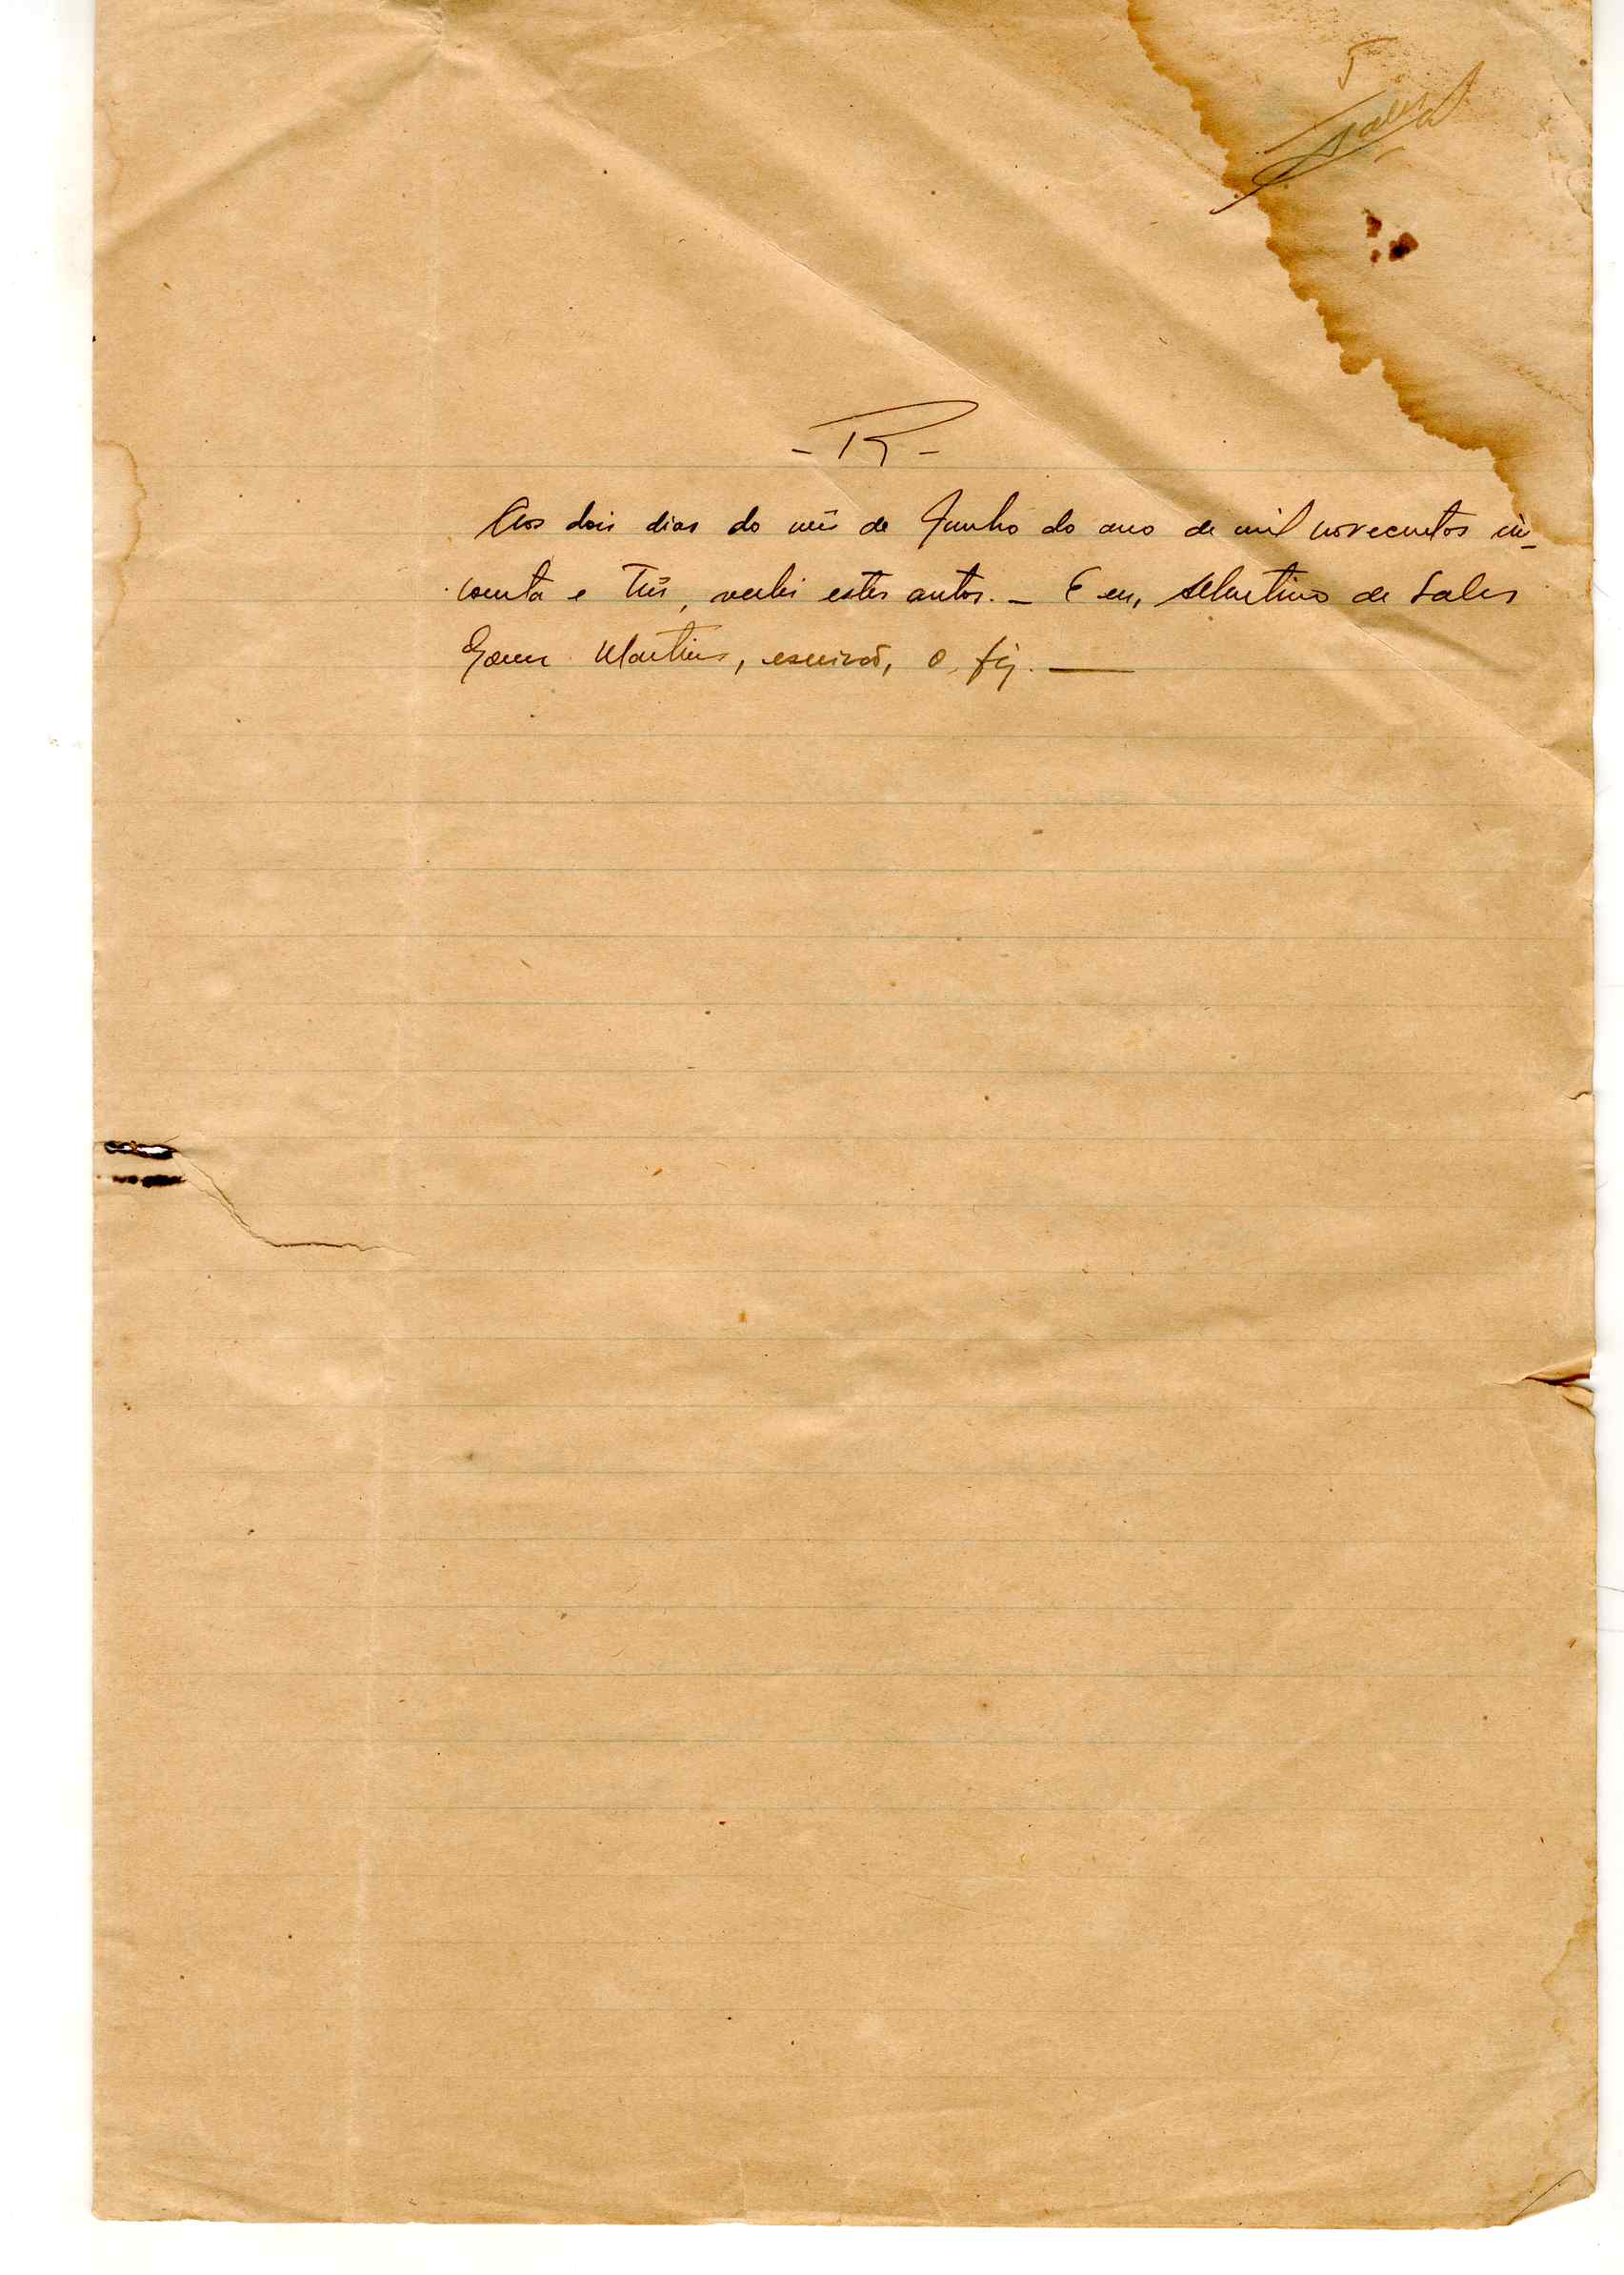 5
Sales
- R -
Aos dois dias do mês de Junho do ano de mil novecentos cin-
coenta e três, recebi estes autos. - E eu, Martins de Sales
Martins, escrivão, o fiz. —